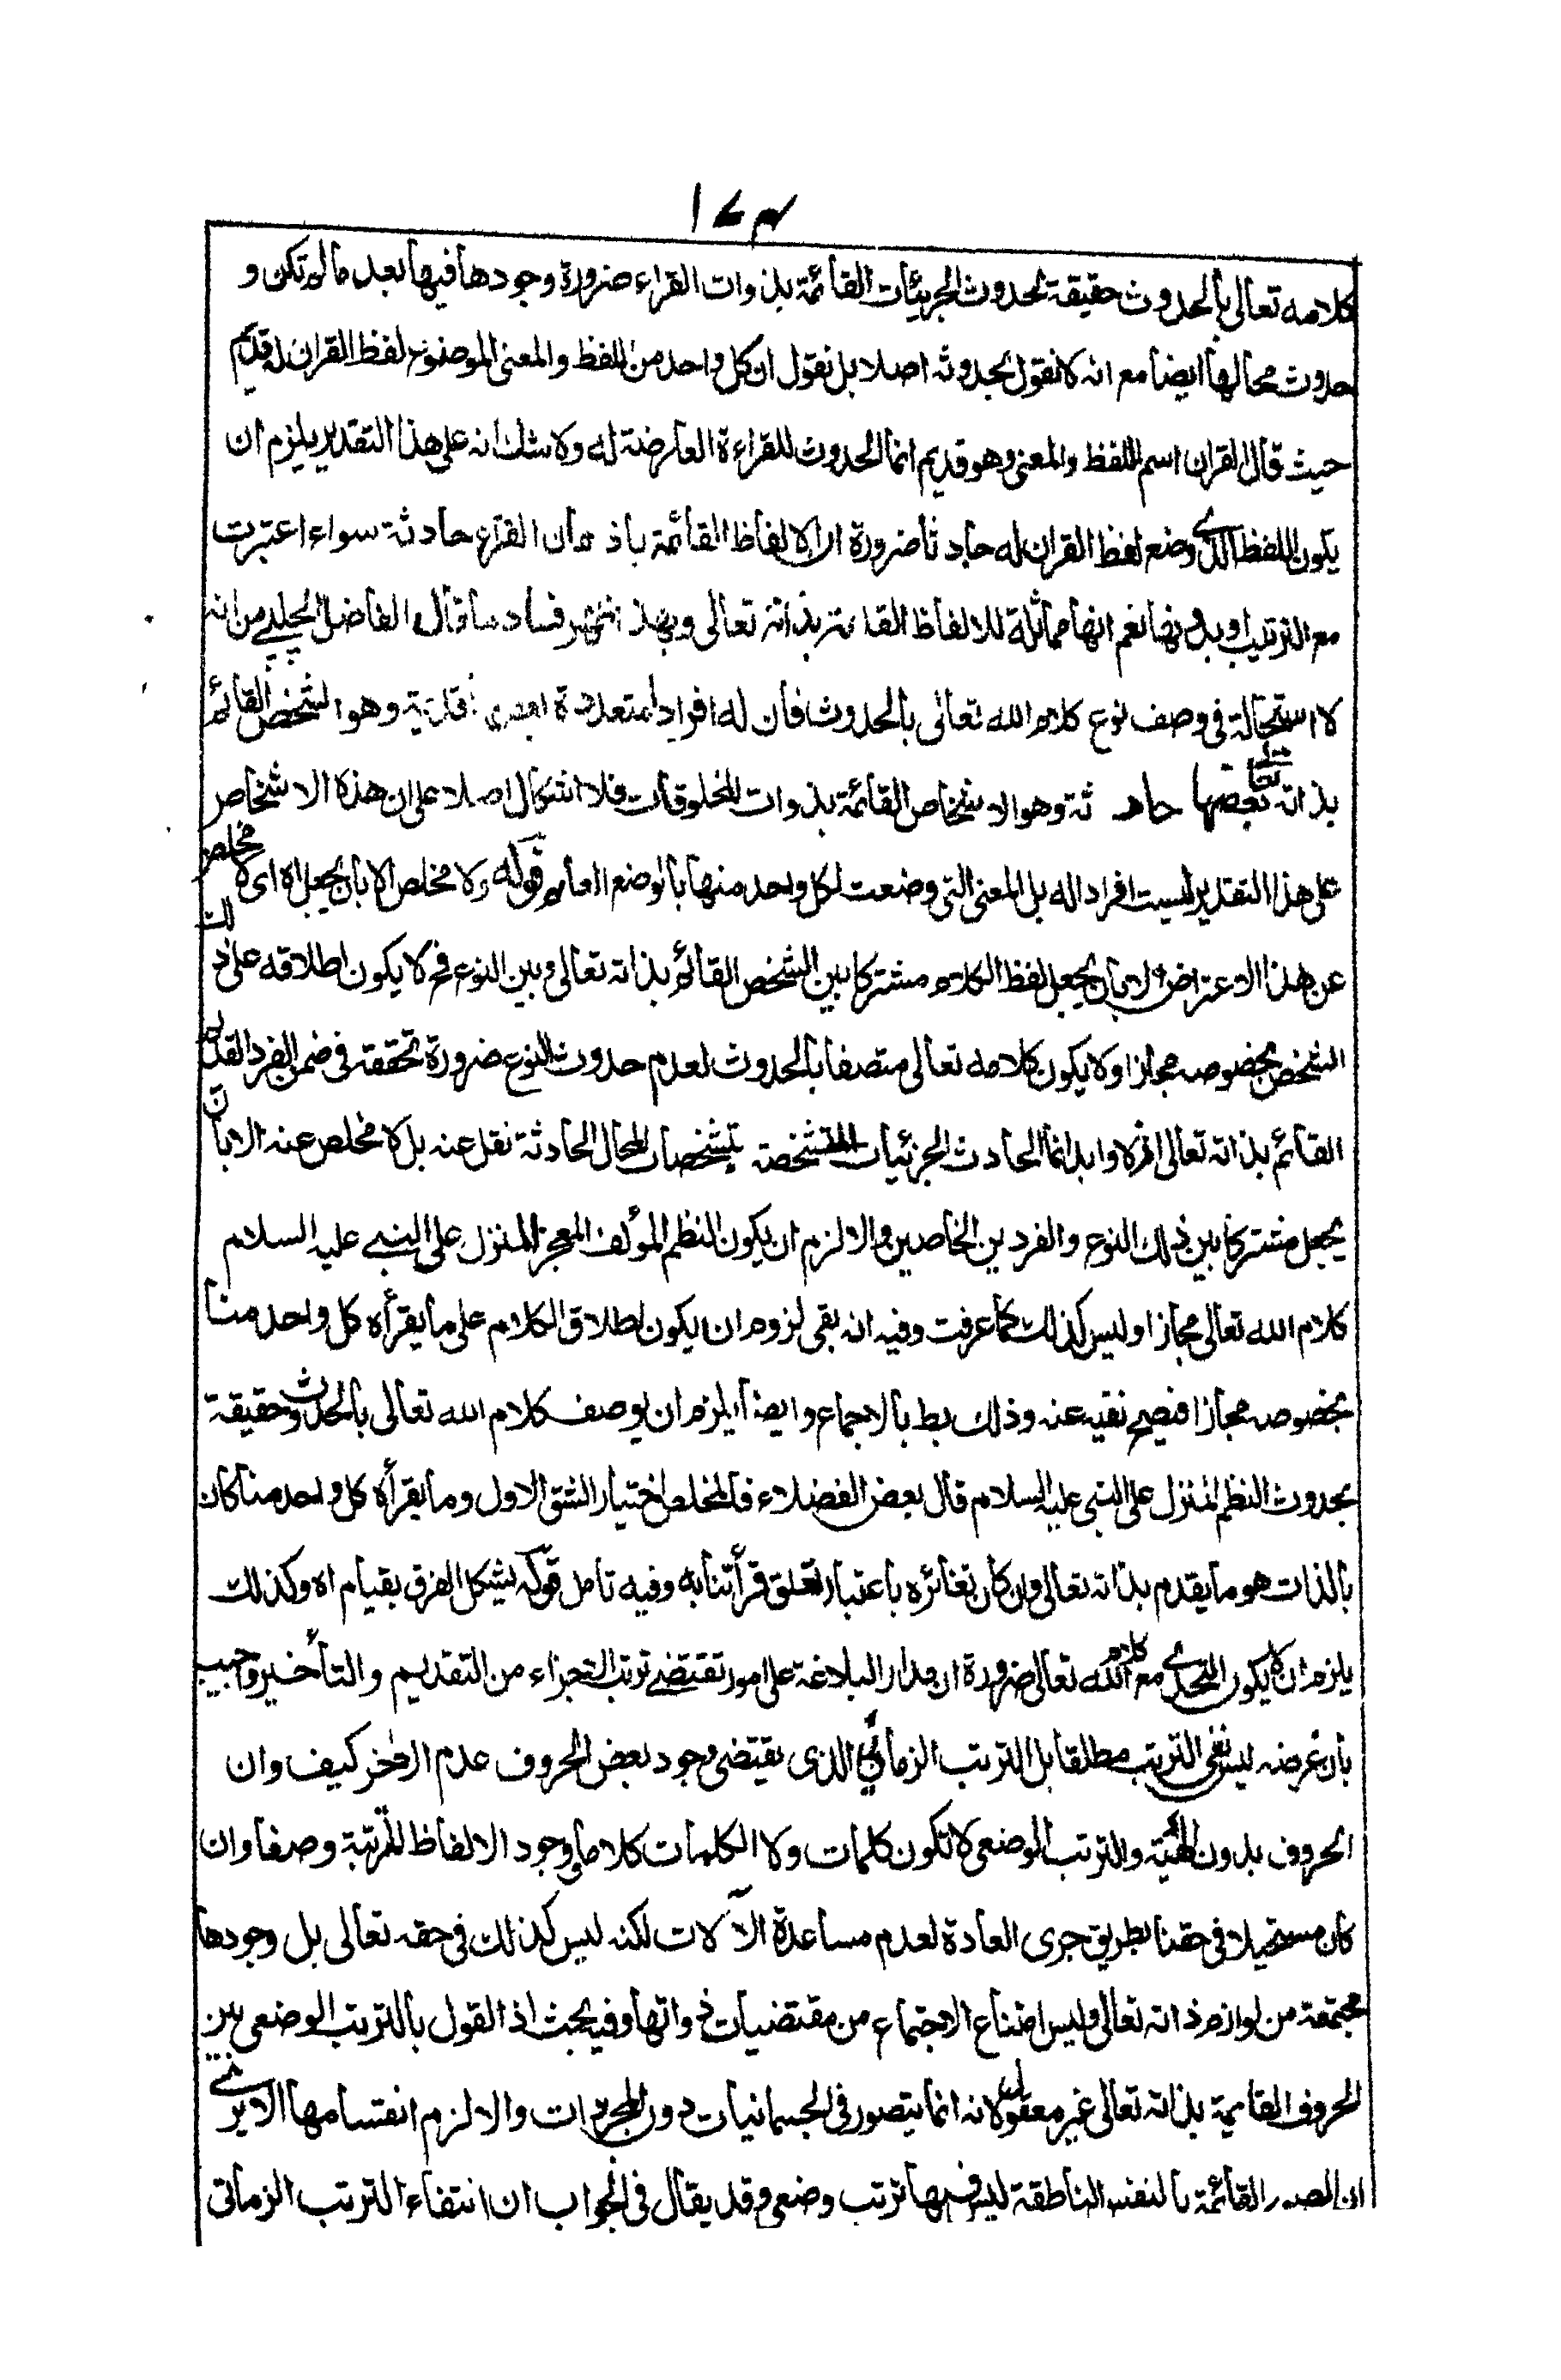 ١٧٤
كلامه تعالى بالحدوث حقيقة لحدوث الجزئيات القائمة بذوات القراء ضرورة وجودها فيها بعد ما لم تكن و
حدوث محالها ايضا مع انه لا نقول بحدوثه اصلا بل نقول ان كل واحد من اللفظ والمعنى الموضوع لفظ القران له قديم
حيث قال القران اسم اللفظ والمعنى وهو قديم انما الحدوث للقراءة العارضة له ولا شك انه على هذا التقدير يلزم ان
يكون اللفظ الذي وضع لفظ القران له حادثا ضرورة ان الالفاظ القائمة باذهان القراء حادثة سواء اعتبرت
مع الترتيب او بدونها نعم انها مماثلة للالفاظ القائمة بذاته تعالى وبهذا ظهر فساد ما قال الفاضل الچلپي من انه
لا استحالة في وصف نوع كلام الله تعالى بالحدوث فان له افرادا متعددة بعضها قديمة وهو الشخص القائم
بذاته تعالى وبعضها حادثة وهو الاشخاص القائمة بذوات المخلوقات فلا اشكال اصلا على ان هذه الاشخاص
على هذا التقدير ليست افراد اله بل المعنى التي وضعت لكل واحد منها بالوضع العام قوله ولا مخلص الا بان يجعل اه اى لا مخلص
عن هذا الاعتراض الا بان يجعل لفظ الكلام مشتركا بين الشخص القائم بذاته تعالى وبين النوع فح لا يكون اطلاقه على ذلك
الشخص بخصوصه مجازا ولا يكون كلامه تعالى متصفا بالحدوث لعدم حدوث النوع ضرورة تحققه في ضمن الفرد القديم
القائم بذاته تعالى ازلا وابدا انما الحادث الجزئيات المتشخصة بتشخصات المحال الحادثة نقل عنه بل لا مخلص عنه الا بان
يجعل مشتركا بين ذلك النوع والفردين الخاصين والا لزم ان يكون النظم المؤلف المعجز المنزل على النبي عليه السلام
كلام الله تعالى مجازا وليس كذلك كما عرفت وفيه انه بقى لزوم ان يكون اطلاق الكلام على ما يقرأه كل واحد منا
بخصوصه مجازا فيصح نفيه عنه وذلك بط بالاجماع وايضا يلزم ان يوصف كلام الله تعالى بالحدوث حقيقة
بحدوث النظم المنزل على النبي عليه السلام قال بعض الفضلاء فالمخلص اختيار الشق الاول وما يقرأه كل واحد منا كان
بالذات هو ما يقدم بذاته تعالى وان كان تغائره باعتبار تعلق قرأتنا به وفيه تامل قوله يشكل الفرق بقيام اه وكذلك
يلزم ان لا يكون التحدي مع كلام الله تعالى ضرورة ان مدار البلاغة على امور تقتضي ترتب التجزاء من التقديم والتأخير واجيب
بان غرضه ليس نفي الترتب مطلقا بل الترتب الزماني الذي يقتضي وجود بعض الحروف عدم الاخر كيف وان
الحروف بدون الهيئة والترتب الوضعي لا تكون كلمات ولا الكلمات كلاما ووجود الالفاظ المترتبة وصفا وان
كان مستحيلا في حقنا بطريق جرى العادة لعدم مساعدة الآلات لكنه ليس كذلك في حقه تعالى بل وجودها
مجتمعة من لوازم ذاته تعالى وليس امتناع الاجتماع من مقتضيات ذواتها وفيه بحث اذ القول بالترتب الوضعي بين
الحروف القايمة بذاته تعالى غير معقول لانه انما يتصور في الجسمانيات دون المجردات والا لزم انقسامها الا يرى
ان الصور القائمة بالنفس الناطقة ليس فيها ترتب وضعي وقد يقال في الجواب ان انتفاء الترتب الزماني